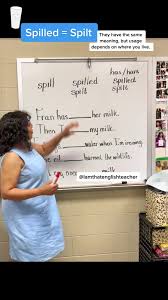 Spilled = Spilt
They have the same
meaning, but usage
depends on where you live.
has/have
spill spilled spilled
spilt spilt
Fran has her milk.
Then my milk.
water when I'm
harmed the wildlife.
@Iamthatenglishteacher
milk.